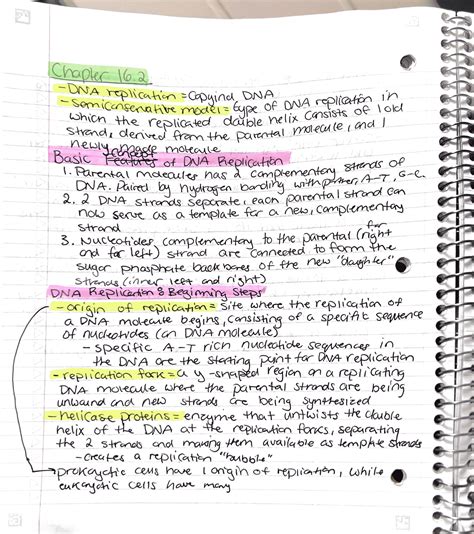 Chapter 16.2
- DNA replication = Copyind DNA
- Semiconservative model = type of DNA replication in
which the replicated double helix consists of 1 old
strand, derived from the parental molecule, and 1
newly made molecule
Basic concept of DNA Replication
1. Parental molecules has 2 complementary strands of
DNA. Paired by hydrogen bonding with A-T, G-C
2. 2 DNA strands separate, each parental strand can
now serve as a template for a new, complementary
strand
3. Nucleotides complementary to the parental (far right
and far left) strand are connected to form the
sugar phosphate backbones of the new "daughter"
strands (inner left and right)
DNA Replication: Beginning Steps
- origin of replication = Site where the replication of
a DNA molecule begins, consisting of a specific sequence
of nucleotides (on DNA molecule)
- Specific A-T rich nucleotide sequences in
the DNA are the starting point for DNA replication
- replication fork = a y-shaped region on a replicating
DNA molecule where the parental strands are being
unwound and new strands are being synthesized
- helicase proteins = enzyme that untwists the double
helix of the DNA at the replication forks, separating
the 2 strands and making them available as template strands
- creates a replication "bubble"
prokaryotic cells have 1 origin of replication, while
eukaryotic cells have many